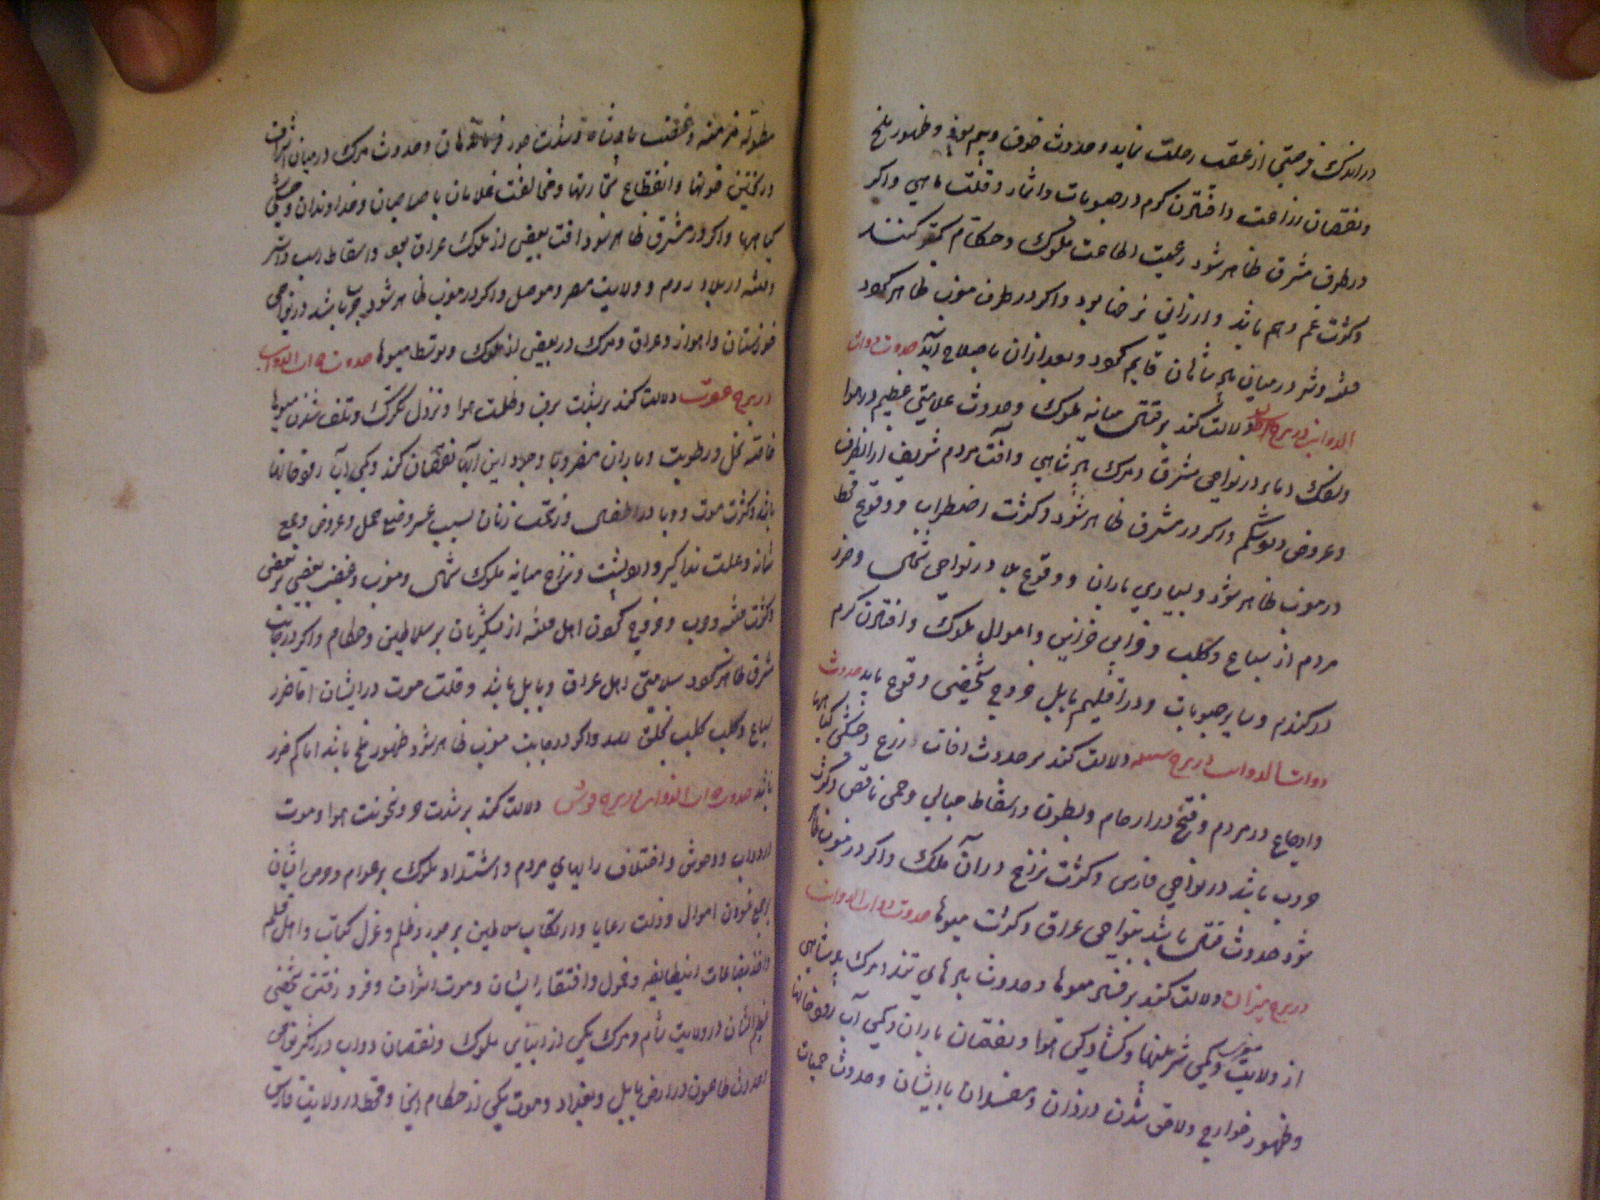 در اندک فرصتی از عقب رحلت نماید و حدوث خوف و بیم بود و ظهور ملخ
و نقصان زراعت و افتادن کرم در حبوبات و اثمار و قلت ماهی و اکر
در طرف مشرق ظاهر شود رعیت اطاعت ملوک و حکام کمتر کنند
و کثرت غم و هم باشد و ارزانی نرخها بود و اکر در طرف مغرب ظاهر کردد
فتنه و شر در میان پادشاهان قایم کردد و بعد از آن باصلاح آید حدوث ذوات
الذوایب در برج دلالت کند بر قتال میانه ملوک و حدوث علامتی عظیم در هوا
و سفک دماء در نواحی مشرق و مرک پادشاهی و آفت مردم شریف از آنطرف
و عروض درد شکم و اکر در مشرق ظاهر شود و کثرت اضطراب و وقوع قحط
در مغرب ظاهر شود و بسیاری باران و وقوع بلا در نواحی شمال و ضرر
مردم از سباع و کلب و خرابی خزاین و اموال ملوک و افتادن کرم
در کندم و سایر حبوبات و در اقلیم بابل خروج شخصی وقوع یابد حدوث
ذوات الذوایب در برج سنبله دلالت کند بر حدوث آفات زرع و خشکی کیاهها
و اوجاع در مردم و قرح در ارحام و بطون و اسقاط حبالی و حمی ناقص و اکر
حرب باشد در نواحی فارس و کثرت نرخ در آن ملک و اکر در مغرب ظاهر
شود حدوث قتال باشد بنواحی عراق و کثرت میوها حدوث ذوات الذوایب
در برج میزان دلالت کند بر فساد میوها و حدوث بادهای تند و مرک پادشاهی
از ولایت مغرب و کمی شر ملخها و کشادکی هوا و نقصان باران و کمی آب رودخانها
و ظهور خوارج و لاحق شدن دزدان و مفسدان با ایشان و حدوث حمیات
مطبقه و غضب پادشاه و شدت جور و حدوث مرک در میان اشراف
و ریختن خونها و انقطاع تجارتها و مخالفت غلامان با صاحبان و خداوندان و خشکی
کیاهها و اکر در مشرق ظاهر شود آفت بعضی از ملوک عراق بود و اسقاط اسب و شر
و فتنه در بلاد روم و ولایت مصر و موصل و اکر در مغرب ظاهر شود حرب باشد در نواحی
خوزستان و اهواز و عراق و مرک در بعضی از ملوک و توسط میوها حدوث ذوات الذوایب
در برج عقرب دلالت کند بر شدت برف و ظلمت هوا و نزول تکرک و تلف شدن میوها
خاصه نخل و رطوبت و باران کند و کمی آب رودخانها
باشد و کثرت موت و وبا در اطفال و تعب زنان بسبب عسر وضع حمل و عروض وجع
مثانه و علت تذاکیر و نزاع میانه ملوک شمال و مغرب و غضب بعضی بر بعضی
و کثرت فتنه و حرب و خروج کردن اهل فتنه از لشکریان بر سلاطین و حکام و اکر در جانب
مشرق ظاهر کردد سلامتی اهل عراق و بابل باشد و قلت موت در ایشان اما ضرر
سباع و کلب بخلق رسد و اکر در جانب مغرب ظاهر شود ظهور ملخ باشد اما کم ضرر
باشد حدوث ذوات الذوایب در برج قوس دلالت کند بر شدت حر و سخونت هوا و موت
در دواب و وحوش و اختلاف رایهای مردم و اشتداد ملوک بر عوام و حرص ایشان
بر جمع نمودن اموال و ذلت رعایا و ارتکاب سلاطین بر جور و ظلم و عزل کتاب و اهل قلم
و اخذ بضاعات این طایفه و خمول و افتقار ایشان و موت اشراف و فرو رفتن شخصی
عظیم الشان در ولایت شام و مرک یکی از ابنای ملوک و نقصان دواب در اکثر نواحی
و حدوث طاعون در ارض بابل و بغداد و موت یکی از حکام آنجا و قحط در ولایت فارس